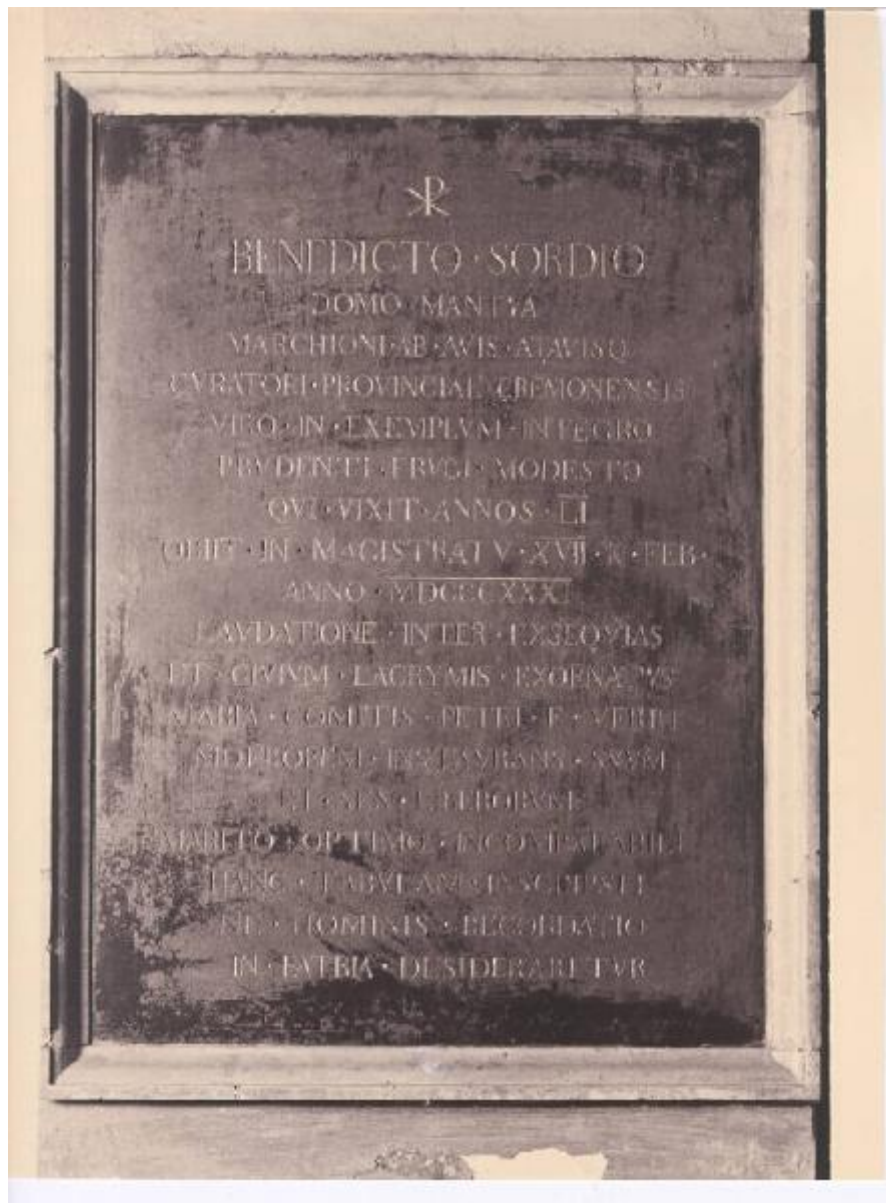 ☧
BENEDICTO · SORDIO
DOMO · MANTVA
MARCHIONI · AB · AVIS · ATAVISQ
CVRATORI · PROVINCIAE · CREMONENSIS
VIRO · IN · EXEMPLVM · INTEGRO
PRVDENTI · FRVGI · MODESTO
QVI · VIXIT · ANNOS · LI
OBIIT · IN · MAGISTRATV · XVII · K · FEB ·
ANNO · MDCCCXXXI
LAVDATIONE · INTER · EXSEQVIAS
ET · CIVIVM · LACRYMIS · EXORNATVS
MARIA · COMITIS · PETRI · F · VERRI
DESIDERIVM · SVVM
ET · SEX · LIBERORVM
MARITO · OPTIMO · INCOMPARABILI
HANC · TABVLAM · INSCRIPSIT
NE · HOMINIS · RECORDATIO
IN · PATRIA · DESIDERARETVR